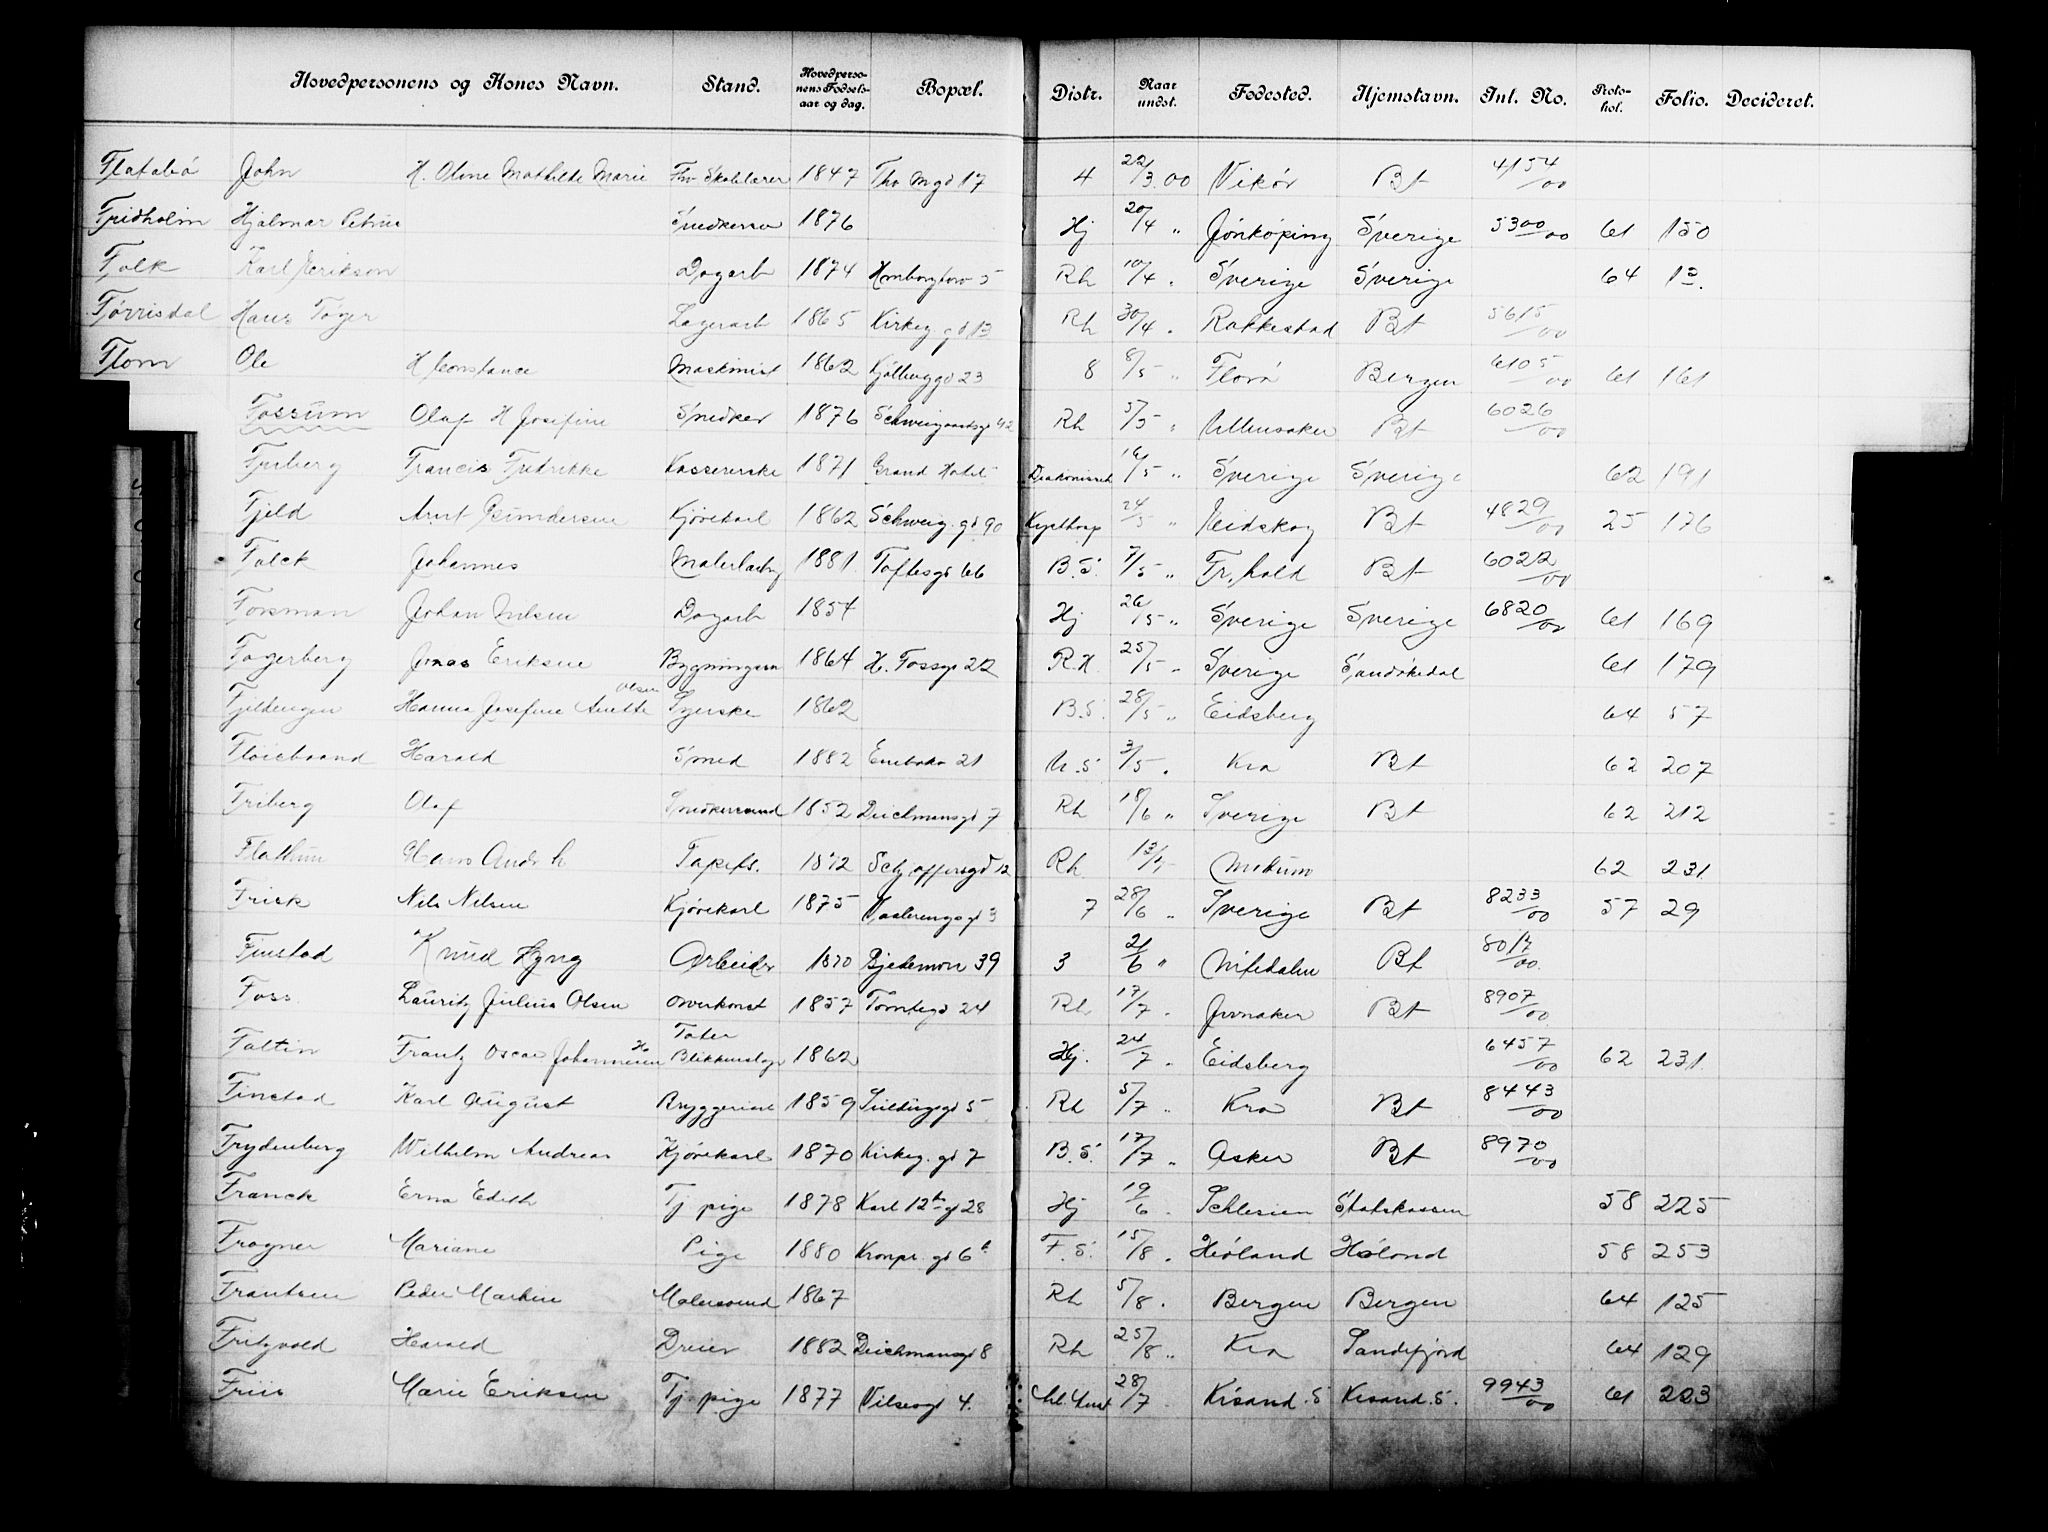 Hovedpersonens og Kones Navn. Stand. Hovedperso-nens Fødsels-aar og dag. Bopæl. Distr. Naar undst. Fødested. Hjemstavn. Int. No. Proto-kol. Folio. Decideret.
Flatabø John H. Oline Mathilde Marie Fhv Skolelærer 1847 Thv Mgd 17 4 22/3 00 Vikør Bt 4154/00
Fridholm Hjalmar Petrus Snedkersv 1876 Hj 20/4 " Jönköping Sverige 5300/00 61 150
Falk Karl Erikson Dagarb 1874 5 Rh 10/4 " Sverige Sverige 64 13.
Tørrisdal Hans Tøger Lagerarb 1865 Kirkeg gd 13 Rh 30/4 " Rakkestad Bt 5615/00
Flom Ole H Constance Maskinist 1862 Kjølberggd 23 8 8/5 " Florø Bergen 6105/00 61 161
Fossum Olaf H Josefine Snedker 1876 Schweigaardsgd 42 Rh 5/5 " Ullensaker Bt 6026/00
Furberg Francis Fredrikke Kassererske 1871 Grand Hotel Diakonisseh 16/5 " Sverige Sverige 62 191
Fjeld Arnt Gundersen Kjørekarl 1862 Schweig. gd 90 24/5 " Eidskog Bt 4829/00 25 176
Falck Johannes Malerlærling 1881 Toftesgd 66 B.S. 7/5 " Fr,hald Bt 6022/00
Forsman Johan Nilsen Dagarb 1854 Hj 26/5 " Sverige Sverige 6820/00 61 169
Fagerberg Jonas Eriksen Bygningssn 1864 H. Fossgd 22 R.H. 25/5 " Sverige Sandøkedal 61 179
Fjeldengen Hanna Josefine Anette Olsen Syerske 1862 B.S. 28/5 " Eidsberg 64 57
Fløistrand Harald Smed 1882 Enebakv 21 U.S. 3/5 " Kra Bt 62 207
Friberg Olaf Snedkersvend 1852 Deichmansgd 7 Rh 18/6 " Sverige Bt 62 212
Flathun Hans Andr h Tapets. 1872 Schjoffersgd 12 Rh 13/7 Modum 62 231
Frisk Nils Nilsen Kjørekarl 1875 Vaalerengsgd 3 7 28/6 " Sverige Bt 8233/00 57 29
Finstad Knud Hyng Arbeider 1870 Gjetemyrv 39 3 21/6 " Nitedalen Bt 8017/00
Foss Lauritz Julius Olsen overkonst 1857 Tomtegd 24 Rh 17/7 " Jevnaker Bt 8907/00
Faltin Frantz Oscar Johannesen H. Tater Blikkenslager 1862 Hj. 24/7 " Eidsberg 6457/00 62 231
Finstad Karl August Bryggeriarb 1859 5 Rh 5/7 " Kra Bt 8443/00
Frydenberg Wilhelm Andreas Kjørekarl 1870 Kirkeg. gd 7 B.S. 17/7 " Asker Bt 8970/00
Franck Erna Edith Tj pige 1878 Karl 12te gd 28 Hj 19/6 " Schlesien Statskassen 58 225
Frogner Mariane Pige 1880 Kronpr. gd 6b F.S. 15/8 " Høland Høland 58 253
Frantzen Peder Martin Malersvend 1867 Rh 5/8 " Bergen Bergen 64 125
Fritzvold Harald Dreier 1882 Deichmansgd 8 Rh 25/8 " Kra Sandefjord 64 129
Friis Marie Eriksen Tj. pige 1877 Vibesgd 4. 28/7 " Krsand. S Krsand. S. 9943/00 61 223